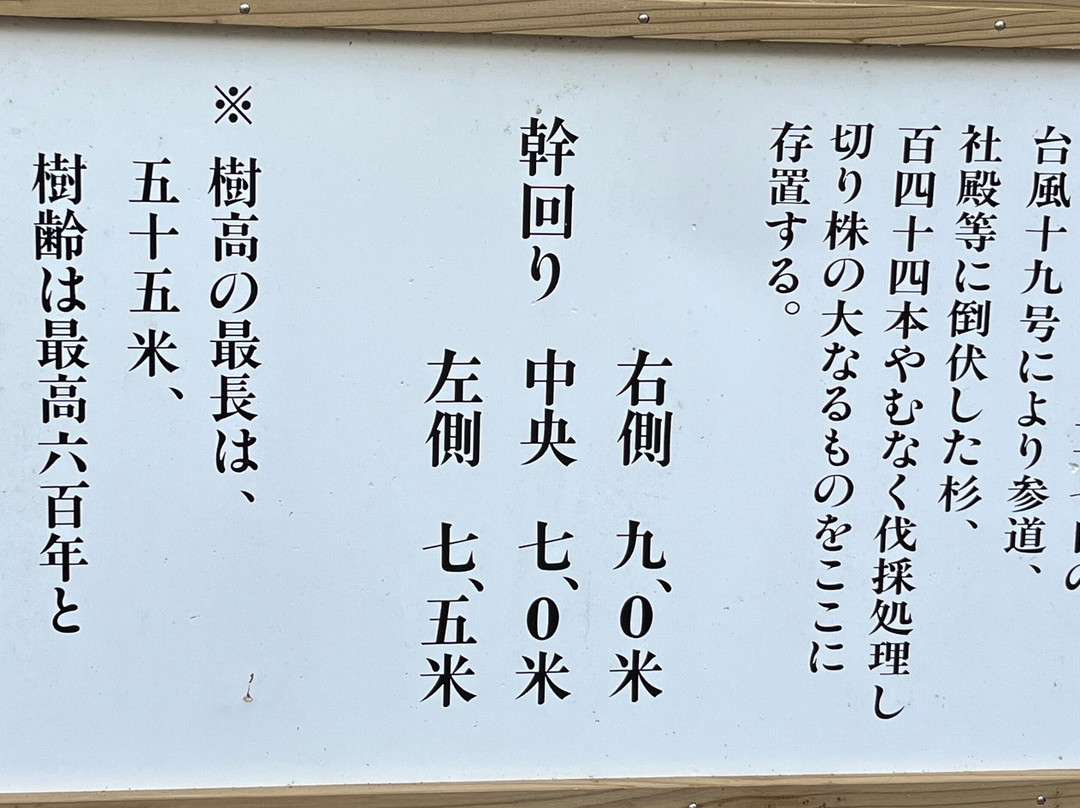 台風十九号により参道、
社殿等に倒伏した杉、
百四十四本やむなく伐採処理し
切り株の大なるものをここに
存置する。
右側 九、0米
幹回り 中央 七、0米
左側 七、五米
※ 樹高の最長は、
五十五米、
樹齢は最高六百年と